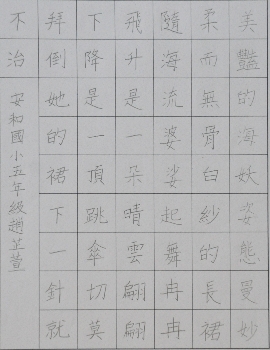 美豔的海妖姿態曼妙
柔而無骨白紗的長裙
隨海流婆娑起舞冉冉
飛升是一朵晴雲翩翩
下降是一頂跳傘切莫
拜倒她的裙下一針就
不治
安和國小五年級趙芷萱